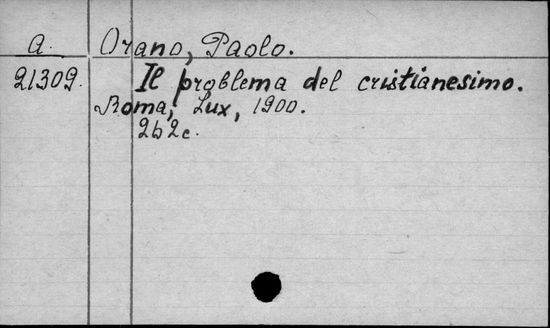 A. Orano, Paolo.
21309. Il problema del cristianesimo.
Roma, Lux, 1900.
2b2c.